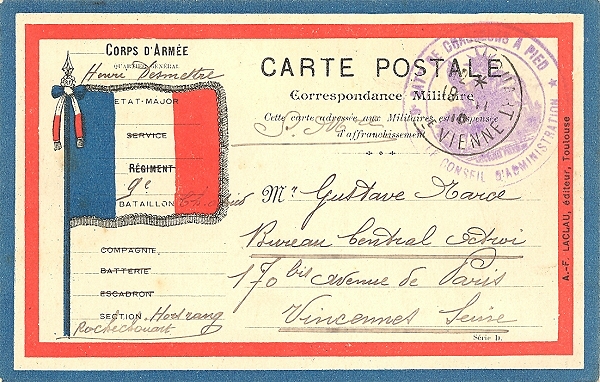 CORPS D'ARMÉE
QUARTIER GÉNÉRAL
Henri Desmettre
ETAT-MAJOR
SERVICE
RÉGIMENT
9e
BATAILLON Ch. à pied
COMPAGNIE
BATTERIE
ESCADRON
SECTION Hors rang
Rochechouart
CARTE POSTALE
Correspondance Militaire
Cette carte adressée aux Militaires est dispensée
d'affranchissement
S. M.
Mr Gustave Marce
Bureau Central Octroi
170 bis Avenue de Paris
Vincennes Seine
Série D.
DE CHASSEURS A PIED
CONSEIL D'ADMINISTRATION
Hte VIENNE
A.-F. LACLAU, éditeur, Toulouse